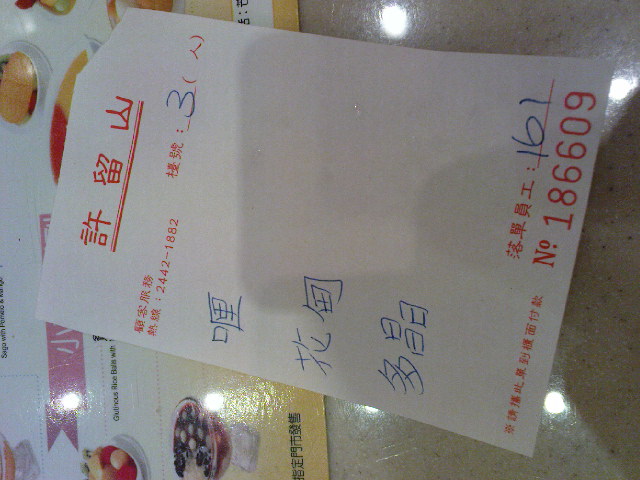 許留山
顧客服務
熱線：2442-1882
檯號：3(人)
喱
花甸
多昌
落單員工：161
№ 186609
※請攜此單到檯面付款
小
Sago with Pomelo & Mango
Glutinous Rice Balls with
指定門市發售